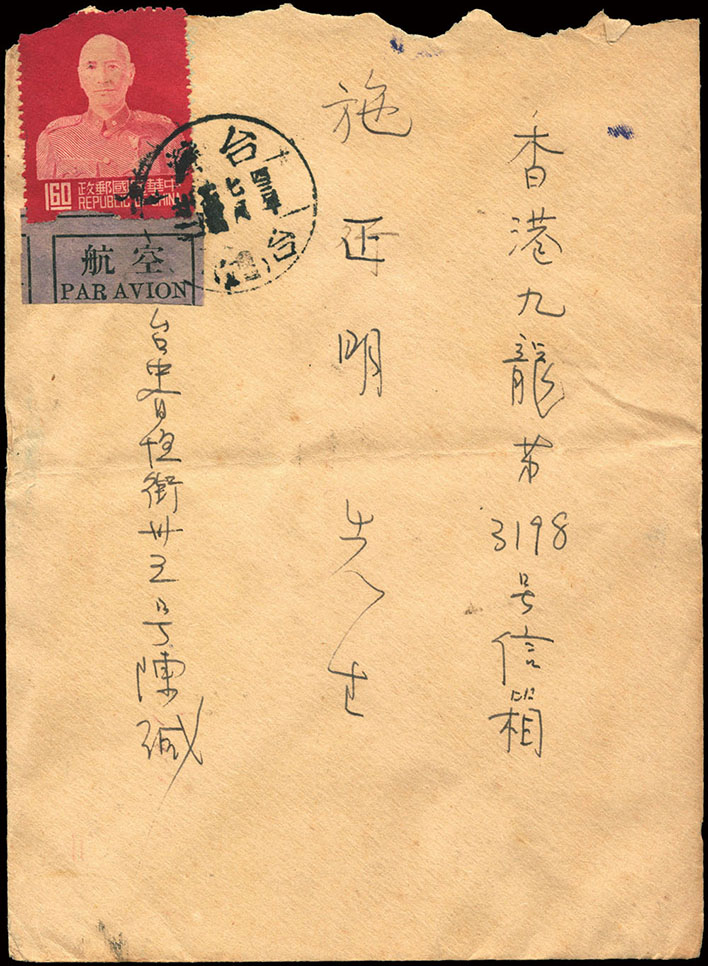 香港九龍苐3198号信箱
施明先生
台中街卅五号陳緘
中華民國郵政
160
REPUBLIC OF CHINA
航空
PAR AVION
台灣
台